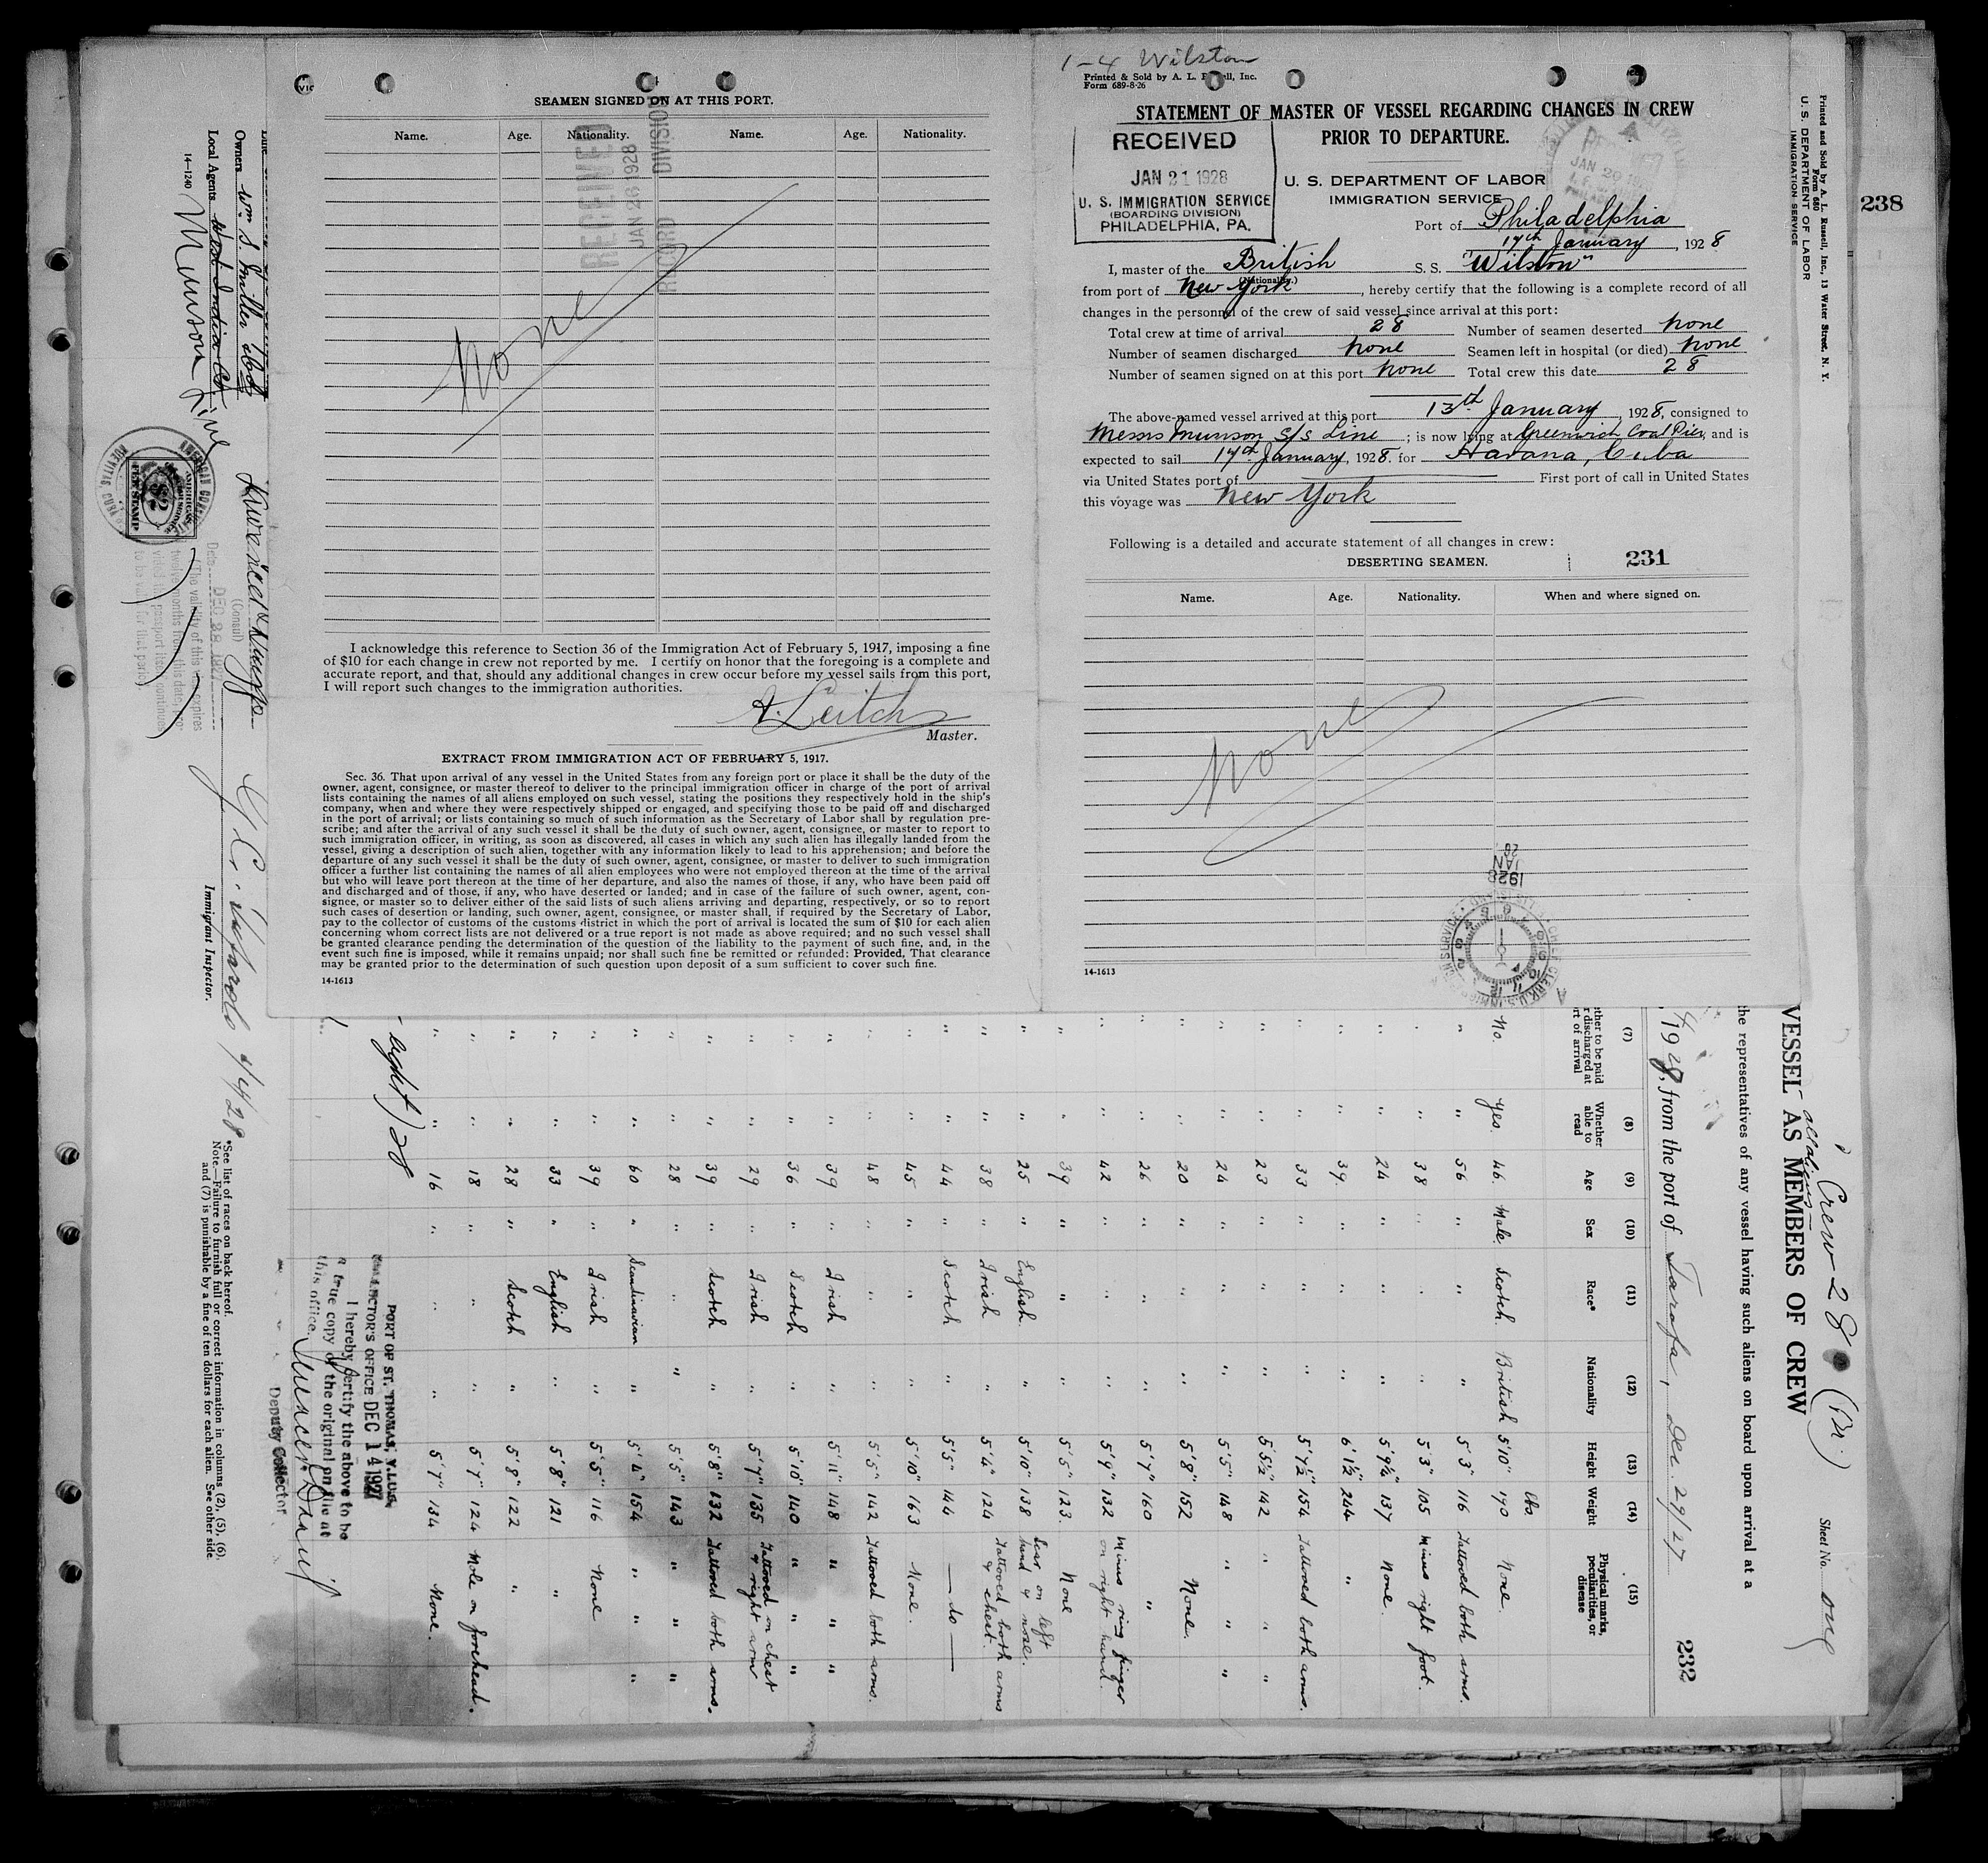 1-4 Wilston
Printed & Sold by A. L. Russell, Inc.
Form 689-8-26
STATEMENT OF MASTER OF VESSEL REGARDING CHANGES IN CREW
PRIOR TO DEPARTURE.
RECEIVED
JAN 21 1928
U. S. IMMIGRATION SERVICE
(BOARDING DIVISION)
PHILADELPHIA, PA.
U. S. DEPARTMENT OF LABOR
IMMIGRATION SERVICE
Port of Philadelphia
17th January, 1928
I, master of the British S. S. "Wilston"
(Nationality.)
from port of New York, hereby certify that the following is a complete record of all
changes in the personnel of the crew of said vessel since arrival at this port:
Total crew at time of arrival 28 Number of seamen deserted none
Number of seamen discharged none Seamen left in hospital (or died) none
Number of seamen signed on at this port none Total crew this date 28
The above-named vessel arrived at this port 13th January, 1928, consigned to
Messrs Munson S/S Line; is now lying at Greenwich Coal Pier, and is
expected to sail 17th January, 1928. for Havana, Cuba
via United States port of First port of call in United States
this voyage was New York
Following is a detailed and accurate statement of all changes in crew:
DESERTING SEAMEN.
231
Name. Age. Nationality. When and where signed on.
None
1928
JAN
14-1613
SEAMEN SIGNED ON AT THIS PORT.
Name. Age. Nationality. Name. Age. Nationality.
RECEIVED
JAN 26 1928
RECORD DIVISION
None
I acknowledge this reference to Section 36 of the Immigration Act of February 5, 1917, imposing a fine
of $10 for each change in crew not reported by me. I certify on honor that the foregoing is a complete and
accurate report, and that, should any additional changes in crew occur before my vessel sails from this port,
I will report such changes to the immigration authorities.
A. Leitch
Master.
EXTRACT FROM IMMIGRATION ACT OF FEBRUARY 5, 1917.
Sec. 36. That upon arrival of any vessel in the United States from any foreign port or place it shall be the duty of the
owner, agent, consignee, or master thereof to deliver to the principal immigration officer in charge of the port of arrival
lists containing the names of all aliens employed on such vessel, stating the positions they respectively hold in the ship's
company, when and where they were respectively shipped or engaged, and specifying those to be paid off and discharged
in the port of arrival; or lists containing so much of such information as the Secretary of Labor shall by regulation pre-
scribe; and after the arrival of any such vessel it shall be the duty of such owner, agent, consignee, or master to report to
such immigration officer, in writing, as soon as discovered, all cases in which any such alien has illegally landed from the
vessel, giving a description of such alien, together with any information likely to lead to his apprehension; and before the
departure of any such vessel it shall be the duty of such owner, agent, consignee, or master to deliver to such immigration
officer a further list containing the names of all alien employees who were not employed thereon at the time of the arrival
but who will leave port thereon at the time of her departure, and also the names of those, if any, who have been paid off
and discharged and of those, if any, who have deserted or landed; and in case of the failure of such owner, agent, con-
signee, or master so to deliver either of the said lists of such aliens arriving and departing, respectively, or so to report
such cases of desertion or landing, such owner, agent, consignee, or master shall, if required by the Secretary of Labor,
pay to the collector of customs of the customs district in which the port of arrival is located the sum of $10 for each alien
concerning whom correct lists are not delivered or a true report is not made as above required; and no such vessel shall
be granted clearance pending the determination of the question of the liability to the payment of such fine, and, in the
event such fine is imposed, while it remains unpaid; nor shall such fine be remitted or refunded: Provided, That clearance
may be granted prior to the determination of such question upon deposit of a sum sufficient to cover such fine.
14-1613
238
Printed and Sold by A. L. Russell, Inc., 13 Water Street, N. Y.
Form 680
U. S. DEPARTMENT OF LABOR
IMMIGRATION SERVICE
Crew 28 (Br)
all aliens
Sheet No. one
VESSEL AS MEMBERS OF CREW
the representatives of any vessel having such aliens on board upon arrival at a
1928, from the port of Tarafa, Dec. 29/27
232
(7) (8) (9) (10) (11) (12) (13) (14) (15)
Whether able to read Age Sex Race* Nationality Height Weight Physical marks, peculiarities, or disease
lbs
No. Yes. 46. Male. Scotch. British 5'10" 190 None.
" " 56 " " " 5'3" 116 Tattooed both arms.
" " 38 " " " 5'3" 105 Minus right foot.
" " 24 " " " 5'9¼" 137 None.
" " 39 " " " 6'1½" 244 "
" " 33 " " " 5'7½" 154 Tattooed both arms.
" " 23 " " " 5'5½" 142 " "
" " 24 " " " 5'5" 148 " "
" " 20 " " " 5'8" 152 None.
" " 26 " " " 5'7" 160 "
" " 42 " " " 5'9" 132 Minus ring finger on right hand.
" " 39 " " " 5'5" 123. None
" " 25 " English. " 5'10" 138 Scar on left hand & nose.
" " 38 " Irish " 5'4" 124 Tattooed both arms & chest.
" " 44 " Scotch " 5'5" 144 — do —
" " 45 " " " 5'10" 163 None.
" " 48 " " " 5'5" 142 Tattooed both arms.
" " 39 " Irish " 5'11" 148 " "
" " 36 " Scotch " 5'10" 140 " "
" " 29 " Irish " 5'7" 135 Tattooed on chest & right arm
" " 39 " Scotch " 5'8" 132 Tattooed both arms.
" " 28 " " " 5'5" 143 " "
" " 60 " Scandinavian " 5'4" 154 " "
" " 39 " Irish " 5'5" 116 None
" " 33 " English " 5'8" 121 "
" " 28 " Scotch " 5'8" 122 "
" " 18 " " " 5'7" 124 Mole on forehead.
" " 16 " " " 5'7" 134 None.
eight) 28
PORT OF ST. THOMAS, V.I.U.S.
COLLECTOR'S OFFICE DEC 14 1927
I hereby certify the above to be
a true copy of the original on file at
this office.
Deputy Collector
*See list of races on back hereof.
Note.—Failure to furnish full or correct information in columns (2), (5), (6),
and (7) is punishable by a fine of ten dollars for each alien. See other side
Immigrant Inspector.
1/4/28
(Consul)
Date DEC 28 1927
(The validity of this visa expires
twelve months from this date, pro-
vided the passport itself continues
to be valid for that period)
$2
FEE STAMP
Owners Wm. S. Miller
Local Agents West India Co
Munson Line
14-1240